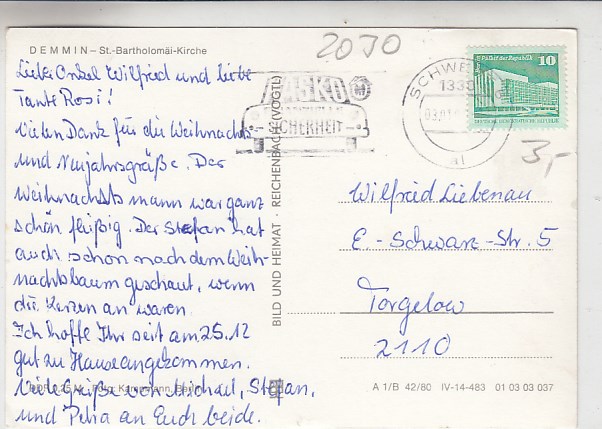 DEMMIN – St.-Bartholomäi-Kirche
2030
Lieber Onkel Wilfried und liebe
Tante Rosi!
Vielen Dank für die Weihnachts
und Neujahrsgrüße. Der
Weihnachtsmann war ganz
schön fleißig. Der Stefan hat
auch schon nach dem Weih-
nachtsbaum geschaut, wenn
die Kerzen an waren.
Ich hoffe Ihr seit am 25.12
gut zu Hause angekommen.
Viele Grüße von Michael, Stefan,
und Petra an Euch beide.
BILD UND HEIMAT · REICHENBACH (VOGTL)
SICHERHEIT
SCHWEDT
1330
Palast der Republik
10
3,-
Wilfried Liebenau
E.-Schwarz-Str. 5
Torgelow
2110
A 1/B 42/80 IV-14-483 01 03 03 037